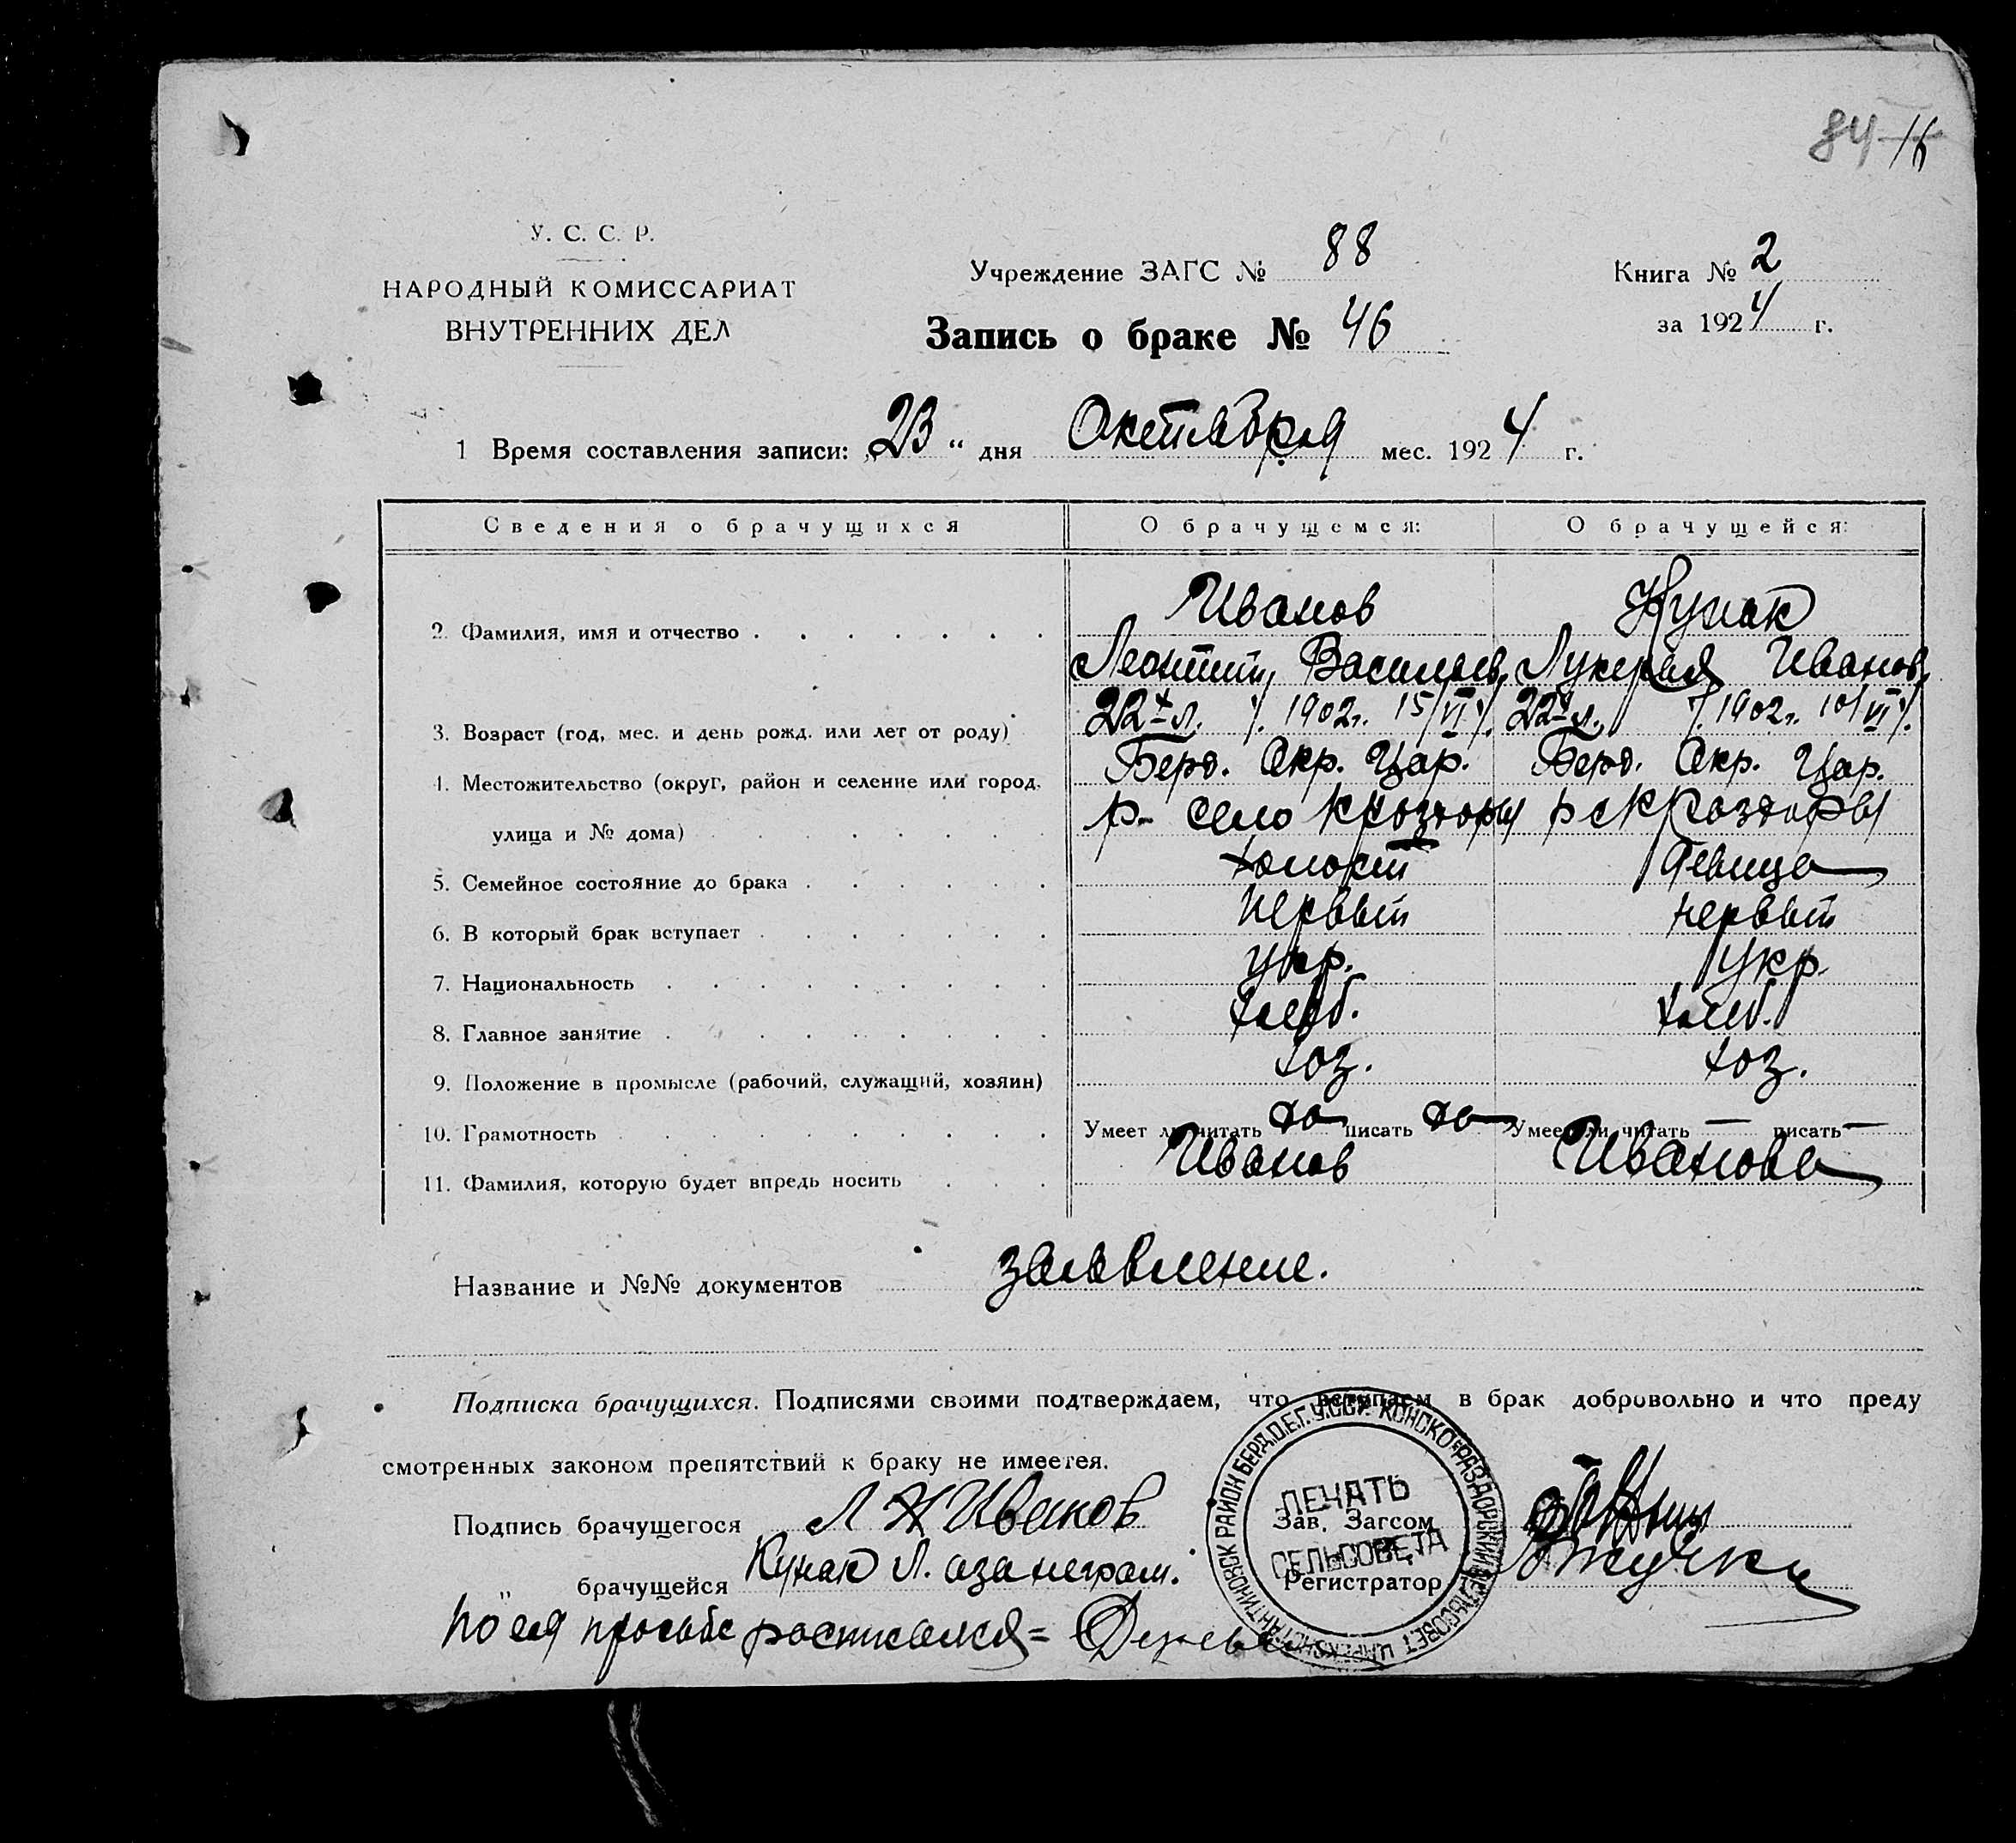 84 16
У. С. С. Р.
НАРОДНЫЙ КОМИССАРИАТ
ВНУТРЕННИХ ДЕЛ
Учреждение ЗАГС № 88
Книга № 2
за 1924 г.
Запись о браке № 46
1 Время составления записи: „23" дня Октября мес. 1924 г.
Сведения о брачущихся О брачущемся: О брачущейся:
2. Фамилия, имя и отчество Иванов Кунак
Леонтий Васильев. Лукерия Иванов.
3. Возраст (год, мес. и день рожд. или лет от роду) 22х л. /. 1902г. 15/VI /. 22х л. /. 1902г. 10/VI /.
4. Местожительство (округ, район и селение или город, Берд. Окр. Цар. Берд. Окр. Цар.
улица и № дома) р- село КРаздоры р с КРаздоры
5. Семейное состояние до брака холост девица
6. В который брак вступает первый первый
7. Национальность укр. укр.
8. Главное занятие хлеб. хлеб.
9. Положение в промысле (рабочий, служащий, хозяин) хоз. хоз.
10. Грамотность Умеет ли читать да писать да Умеет ли читать — писать —
11. Фамилия, которую будет впредь носить Иванов Иванова
Название и №№ документов заявление.
Подписка брачущихся. Подписями своими подтверждаем, что вступаем в брак добровольно и что преду
смотренных законом препятствий к браку не имеется.
Подпись брачущегося Л Иванов Зав. Загсом
брачущейся Кунак Л. а за неграм. Регистратор
По ея просьбе росписался=
ПЕЧАТЬ
СЕЛЬСОВЕТА
КОНСКО-РАЗДОРСКИЙ СЕЛЬСОВЕТ ЦАРЕКОНСТАНТИНОВСК РАЙОН БЕРД.О.Е.Г.У.ССР.